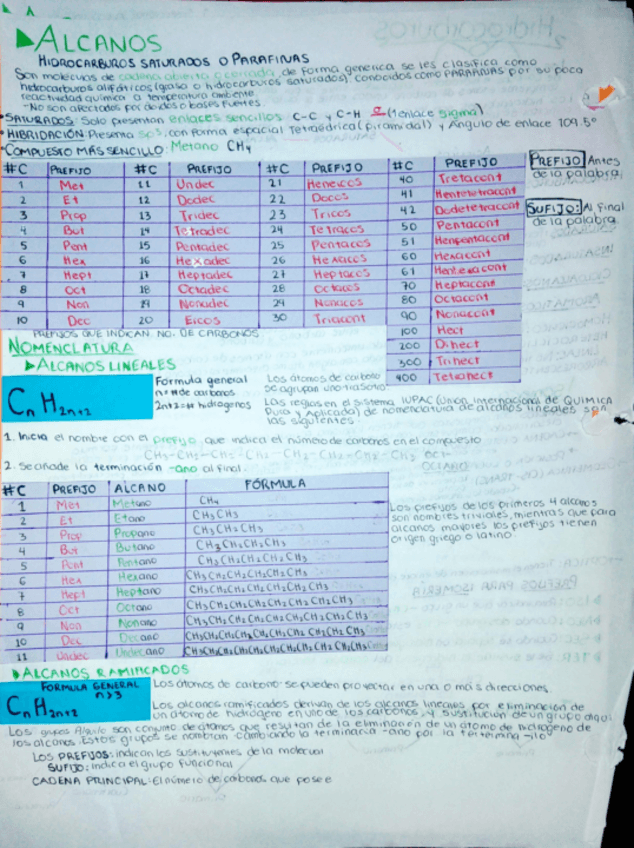 ALCANOS
HIDROCARBUROS SATURADOS O PARAFINAS
Son moléculas de cadena abierta o cerrada, de forma generica se les clasifica como
hidrocarburos alifáticos (grasa o hidrocarburos saturados), conocidos como PARAFINAS por su poca
reactividad química a temperatura ambiente
-No son afectados por ácidos o bases fuertes.
SATURADOS: Solo presentan enlaces sencillos C-C y C-H σ (1 enlace sigma)
HIBRIDACIÓN: Presenta sp3, con forma espacial Tetraédrica (piramidal) y Ángulo de enlace 109.5°
COMPUESTO MÁS SENCILLO: Metano CH4
#C PREFIJO #C PREFIJO #C PREFIJO #C PREFIJO
1 Met 11 Undec 21 Heneicos 40 Tretacont
2 Et 12 Dodec 22 Docos 41 Hentetetraccont
3 Prop 13 Tridec 23 Tricos 42 Dodetetraccont
4 But 14 Tetradec 24 Tetracos 50 Pentacont
5 Pent 15 Pentadec 25 Pentacos 51 Henpentaccont
6 Hex 16 Hexadec 26 Hexacos 60 Hexacont
7 Hept 17 Heptadec 27 Heptacos 61 Hentexacont
8 Oct 18 Octadec 28 Octacos 70 Heptacont
9 Non 19 Nonadec 29 Nonacos 80 Octacont
10 Dec 20 Eicos 30 Triacont 90 Nonacont
100 Hect
200 Dihect
300 Trihect
400 Tetahect
PREFIJO: Antes
de la palabra
SUFIJO: Al final
de la palabra
PREFIJOS QUE INDICAN NO. DE CARBONOS
NOMENCLATURA
ALCANOS LINEALES
CnH2n+2
Fórmula general
n = # de carbonos
2n+2 = # hidrogenos
Los átomos de carbono
se agrupan uno tras otro
Las reglas en el sistema IUPAC (Union Internacional de QUIMICA
Pura y Aplicada) de nomenclatura de alcanos lineales son
las siguientes:
1. Inicia el nombre con el prefijo, que indica el número de carbonos en el compuesto
CH3-CH2-CH2-CH2-CH2-CH2-CH2-CH3 oct-
OCTANO
2. Se añade la terminación -ano al final.
#C PREFIJO ALCANO FÓRMULA
1 Met Metano CH4
2 Et Etano CH3CH3
3 Prop Propano CH3CH2CH3
4 But Butano CH3CH2CH2CH3
5 Pent Pentano CH3CH2CH2CH2CH3
6 Hex Hexano CH3CH2CH2CH2CH2CH3
7 Hept Heptano CH3CH2CH2CH2CH2CH2CH3
8 Oct Octano CH3CH2CH2CH2CH2CH2CH2CH3
9 Non Nonano CH3CH2CH2CH2CH2CH2CH2CH2CH3
10 Dec Decano CH3CH2CH2CH2CH2CH2CH2CH2CH2CH3
11 Undec Undecano CH3CH2CH2CH2CH2CH2CH2CH2CH2CH2CH3
Los prefijos de los primeros 4 alcanos
son nombres triviales, mientras que para
alcanos mayores los prefijos tienen
origen griego o latino.
ALCANOS RAMIFICADOS
FORMULA GENERAL
n>3
CnH2n+2
Los átomos de carbono se pueden proyectar en una o más direcciones.
Los alcanos ramificados derivan de los alcanos lineales por eliminación de
un átomo de hidrógeno en uno de los carbonos, y sustitución de un grupo alquilo
Los grupos Alquilo son conjunto de átomos que resultan de la eliminación de un átomo de hidrogeno de
los alcanos. Estos grupos se nombran cambiando la terminacia -ano por la -ilo
Los PREFIJOS: indican los sustituyentes de la molecual
SUFIJO: indica el grupo funcional
CADENA PRINCIPAL: El número de carbonos que posee